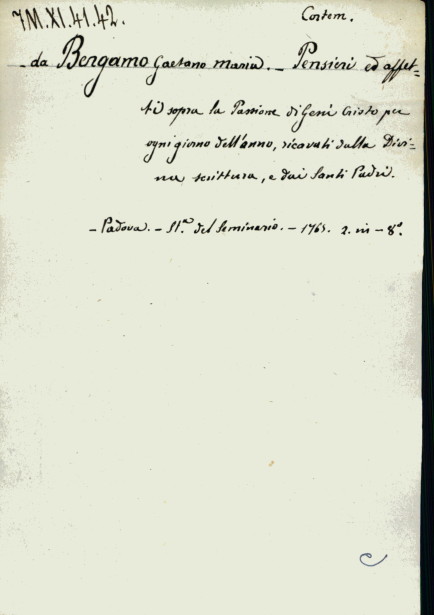 7M.XI.41.42.
Contem.
- da Bergamo Gaetano Maria. - Pensieri ed affet-
ti sopra la Passione di Gesù Cristo per
ogni giorno dell'anno, ricavati dalla Divi-
na scrittura, e dai Santi Padri.
- Padova. - St.ª del Seminario. - 1765. 2. in - 8º.